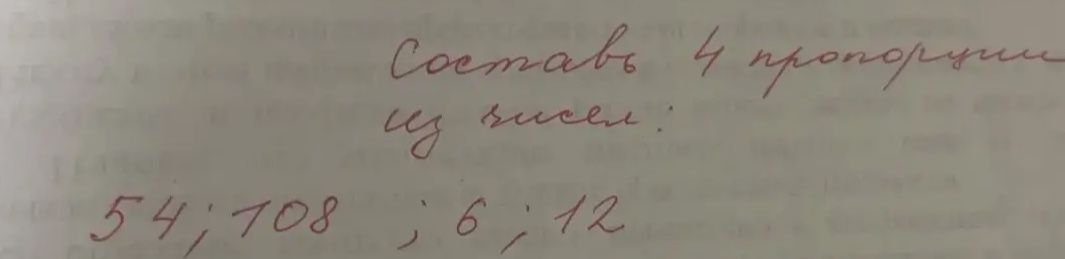 Составь 4 пропорции
из чисел:
54; 108 ; 6 ; 12